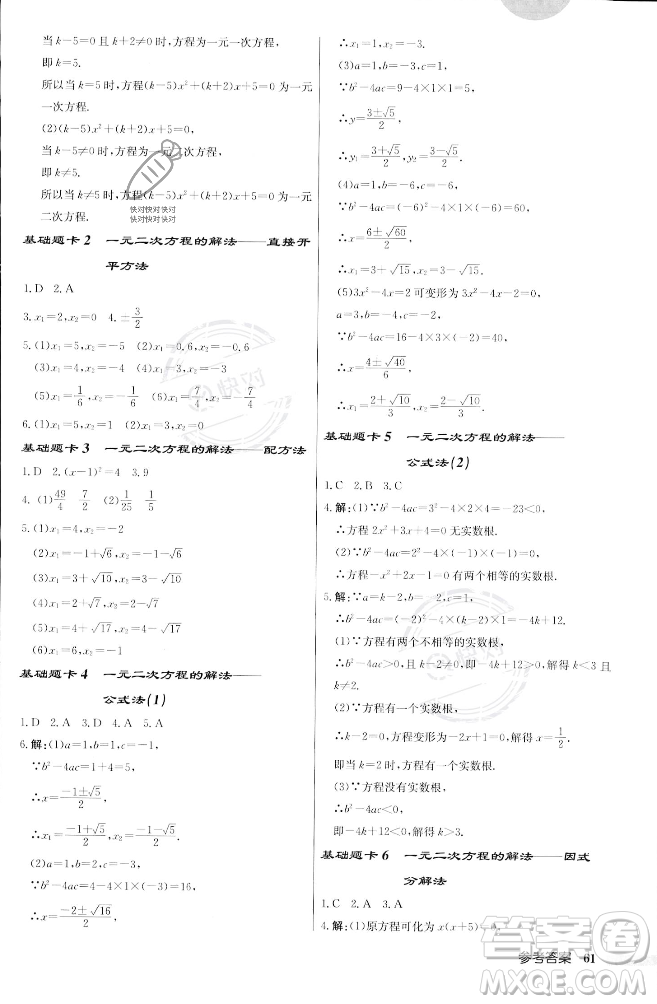 当 k-5=0 且 k+2≠0 时,方程为一元一次方程,
即 k=5.
所以当 k=5 时,方程(k-5)x²+(k+2)x+5=0 为一元
一次方程.
(2)(k-5)x²+(k+2)x+5=0,
当 k-5≠0 时,方程为一元二次方程,
即 k≠5.
所以当 k≠5 时,方程(k-5)x²+(k+2)x+5=0 为一元
二次方程.
快对快对快对
快对快对快对
基础题卡 2 一元二次方程的解法——直接开
平方法
1.D 2.A
3.x₁=2,x₂=0 4.±3/2
5.(1)x₁=5,x₂=-5 (2)x₁=0.6,x₂=-0.6
(3)x₁=4,x₂=-4 (4)x₁=3,x₂=-3
(5)x₁=1/6,x₂=-1/6 (6)x₁=7/4,x₂=-7/4
6.(1)x₁=5,x₂=1
快对
基础题卡 3 一元二次方程的解法——配方法
1.D 2.(x-1)²=4 3.9
4.(1)49/4 7/2 (2)1/25 1/5
5.(1)x₁=4,x₂=-2
(2)x₁=-1+√6,x₂=-1-√6
(3)x₁=√10,x₂=-√10
(4)x₁=2+√7,x₂=2-√7
(5)x₁=4+√17,x₂=4-√17
(6)x₁=3,x₂=-1
基础题卡 4 一元二次方程的解法——
公式法(1)
1.D 2.A 3.A 4.A 5.A
6.解:(1)a=1,b=1,c=-1,
∵b²-4ac=1+4=5,
∴x=(-1±√5)/2,
∴x₁=(-1+√5)/2,x₂=(-1-√5)/2.
(2)a=1,b=2,c=-3,
∵b²-4ac=4-4×1×(-3)=16,
∴x=(-2±√16)/2,
∴x₁=1,x₂=-3.
(3)a=1,b=-3,c=1,
∵b²-4ac=9-4×1×1=5,
∴y=(3±√5)/2,
∴y₁=(3+√5)/2,y₂=(3-√5)/2.
(4)a=1,b=-6,c=-6,
∵b²-4ac=36-4×1×(-6)=60,
∴x=(6±√60)/2,
∴x₁=3+√15,x₂=3-√15.
(5)3x²-4x=2 可变形为 3x²-4x-2=0,
a=3,b=-4,c=-2,
∵b²-4ac=16-4×3×(-2)=40,
∴x=(4±√40)/6,
∴x₁=(2+√10)/3,x₂=(2-√10)/3.
基础题卡 5 一元二次方程的解法——
公式法(2)
1.C 2.B 3.C
4.解:(1)∵b²-4ac=3²-4×2×4=-23<0,
∴方程 2x²+3x+4=0 无实数根.
∴方程-x²+2√2x-2=0 有两个相等的实数根.
5.解:∵a=k-2,b=-2,c=1,
(1)∵方程有两个不相等的实数根,
∴b²-4ac>0,k-2≠0,即-4k+12>0,解得 k<3 且
k≠2.
(2)∵方程有一个实数根,
∴k-2=0,方程变形为-2x+1=0,解得 x=1/2.
当 k=2 时,方程有一个实数根.
(3)∵方程没有实数根,
∴b²-4ac<0,
即-4k+12<0,解得 k>3.
基础题卡 6 一元二次方程的解法——因式
分解法
1.C 2.A 3.A
4.解:(1)原方程可化为 x(x+5)=0,
参考答案 61